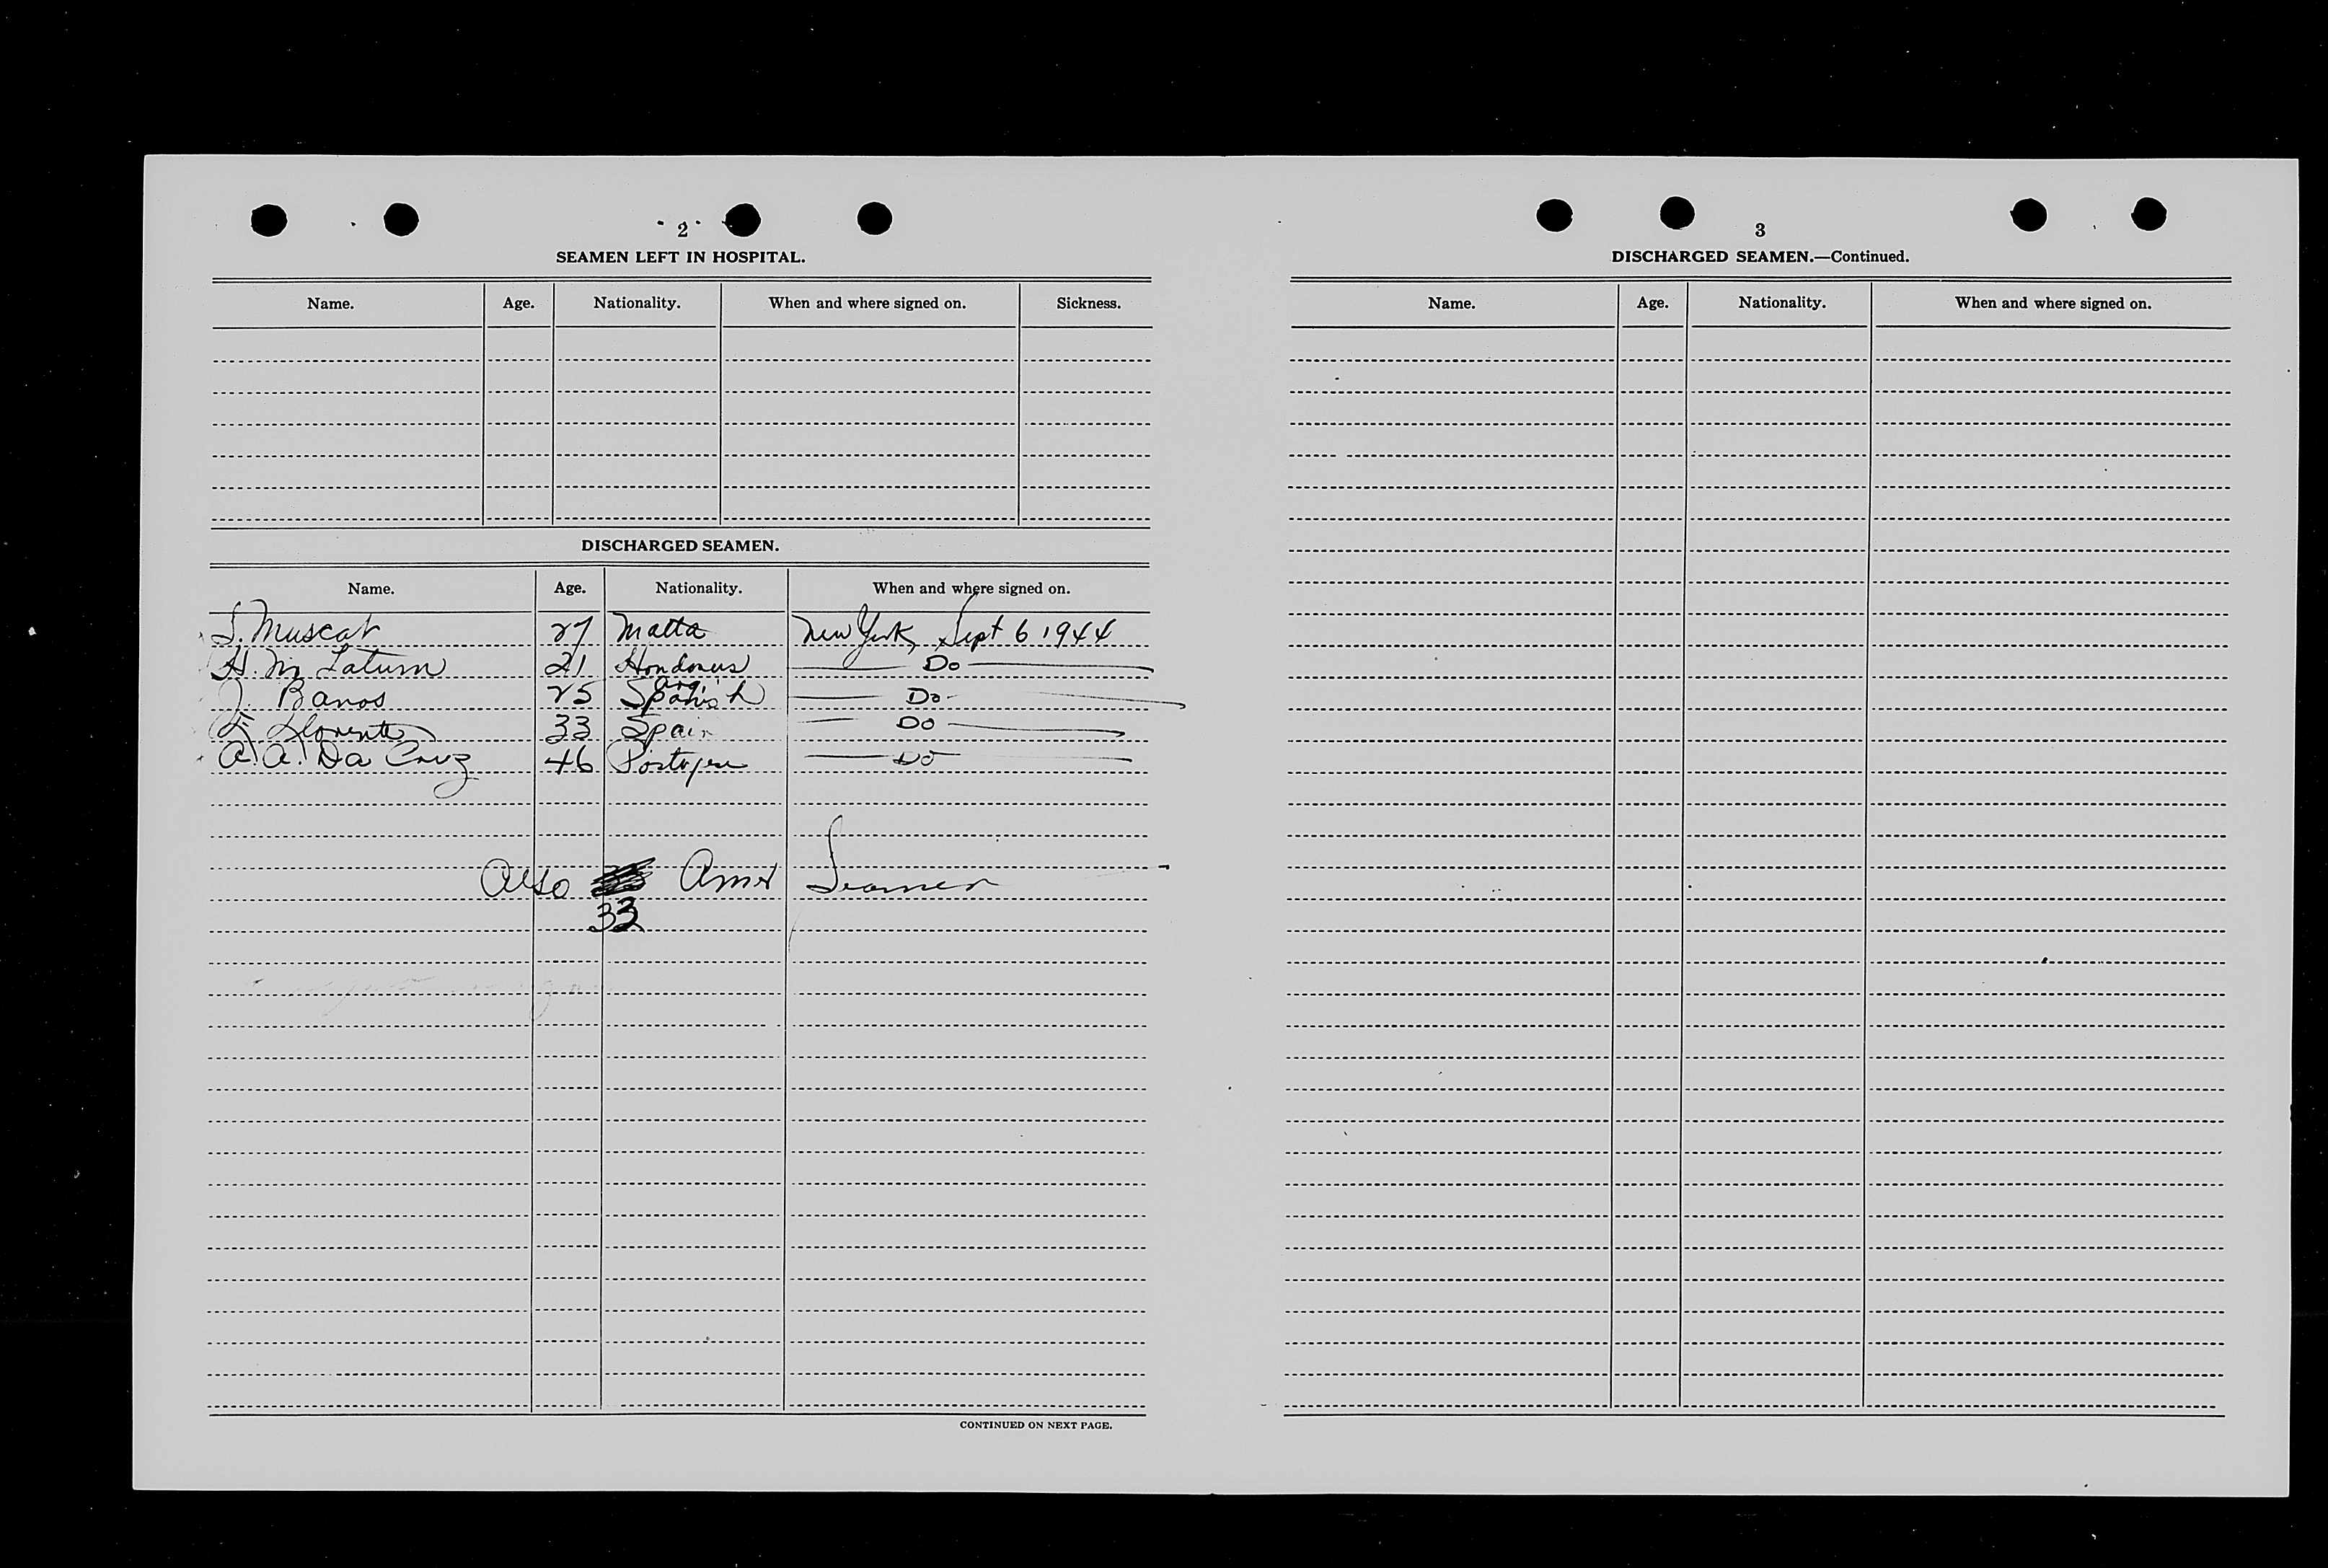 2
SEAMEN LEFT IN HOSPITAL.
Name. Age. Nationality. When and where signed on. Sickness.
DISCHARGED SEAMEN.
Name. Age. Nationality. When and where signed on.
S. Muscat 27 Malta New York, Sept 6 1944
H. M. Tatum 21 Honduras Do
J. Banos 25 Spanish Arg. Do
Llorente 33 Spain Do
A. A. Da Cruz 46 Do
Also Amer Seamen
33
CONTINUED ON NEXT PAGE.
3
DISCHARGED SEAMEN.—Continued.
Name. Age. Nationality. When and where signed on.